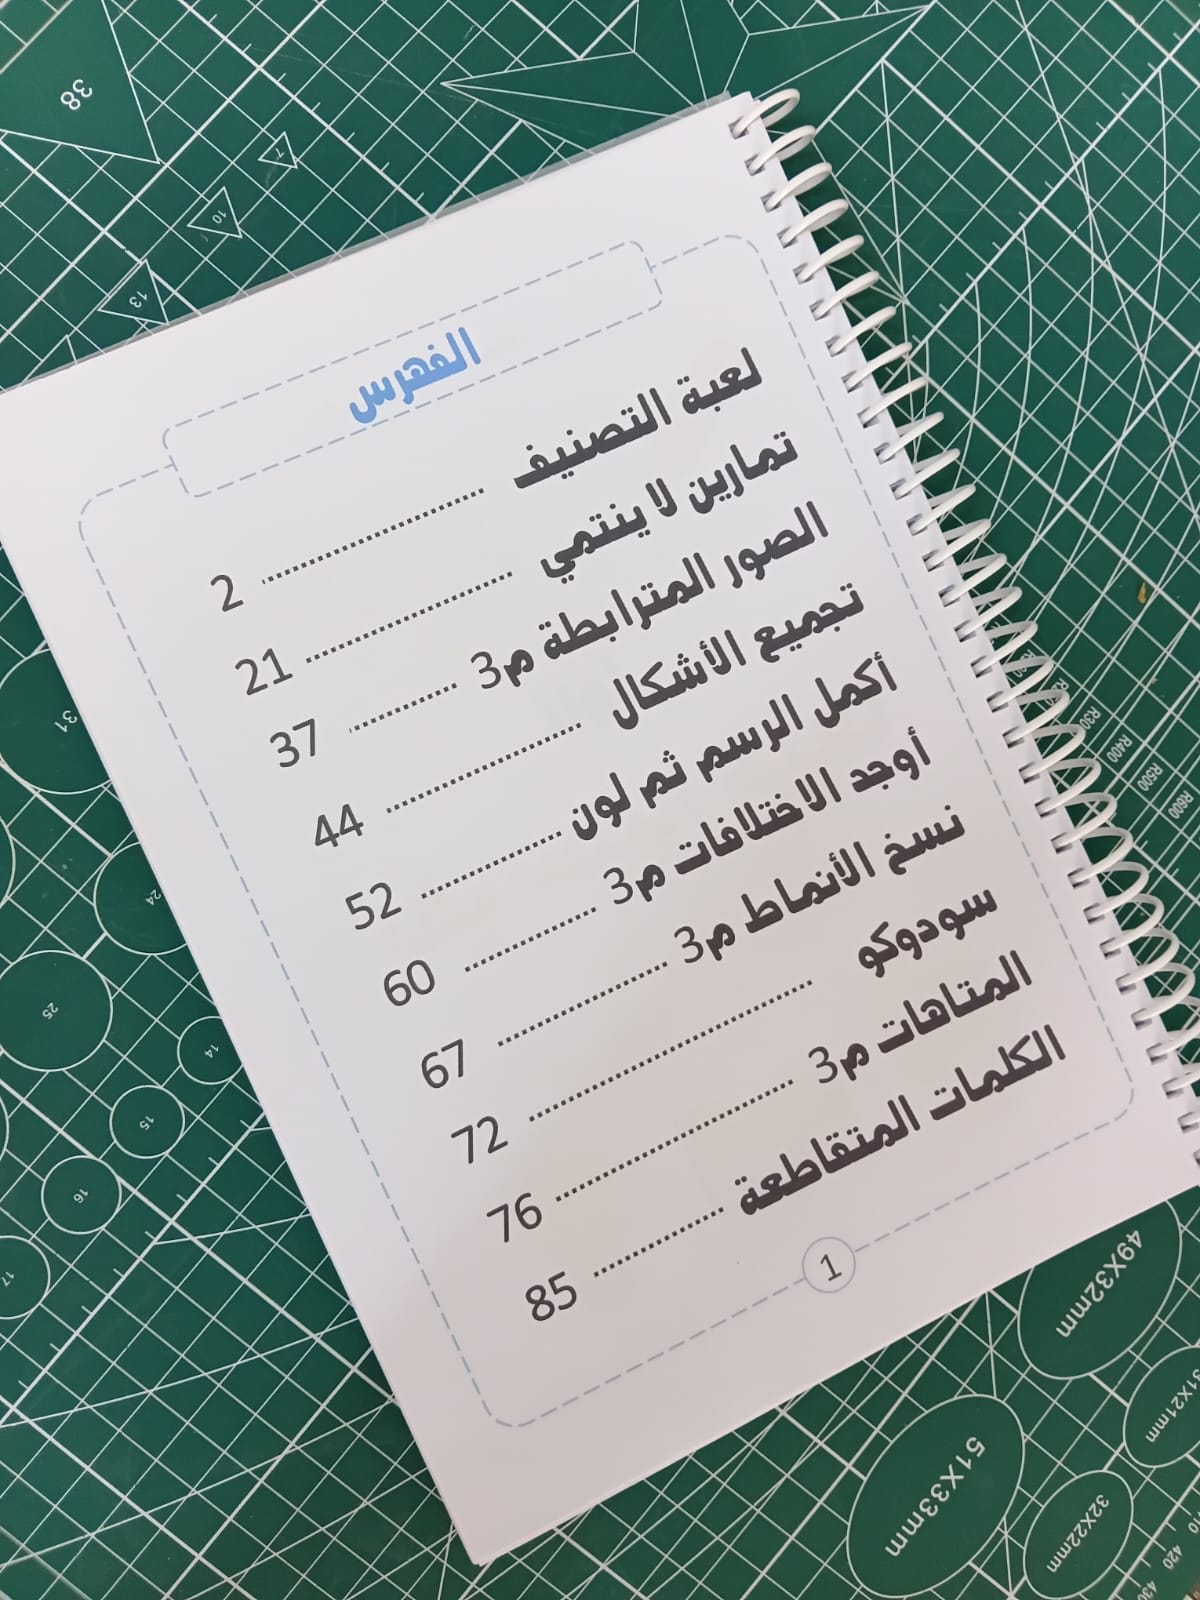 الفهرس
لعبة التصنيف ........................ 2
تمارين لا ينتمي ........................ 21
الصور المترابطة م3 ............ 37
تجميع الأشكال ........................ 44
أكمل الرسم ثم لون ............... 52
أوجد الاختلافات م3 ............... 60
نسخ الأنماط م3 .................. 67
سودوكو ................................. 72
المتاهات م3 ........................... 76
الكلمات المتقاطعة ............... 85
1
38
7
10
13
31
24
25
14
15
16
17
R300
R400
R500
R600
49X32mm
51X33mm
31X21mm
32X22mm
420
430